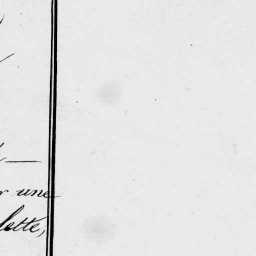 r une
lette,